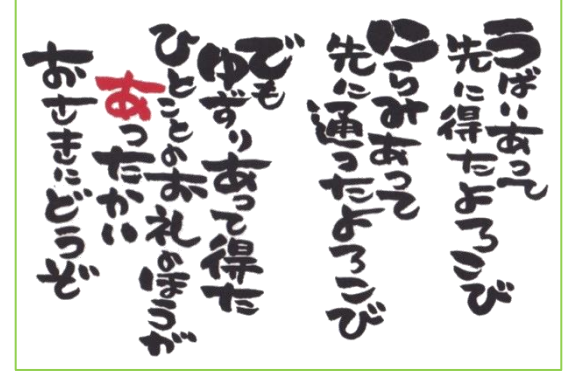 うばいあって
先に得たよろこび
にらみあって
先に通ったよろこび
でも
ゆずりあって得た
ひとことのお礼のほうが
あったかい
おさきにどうぞ